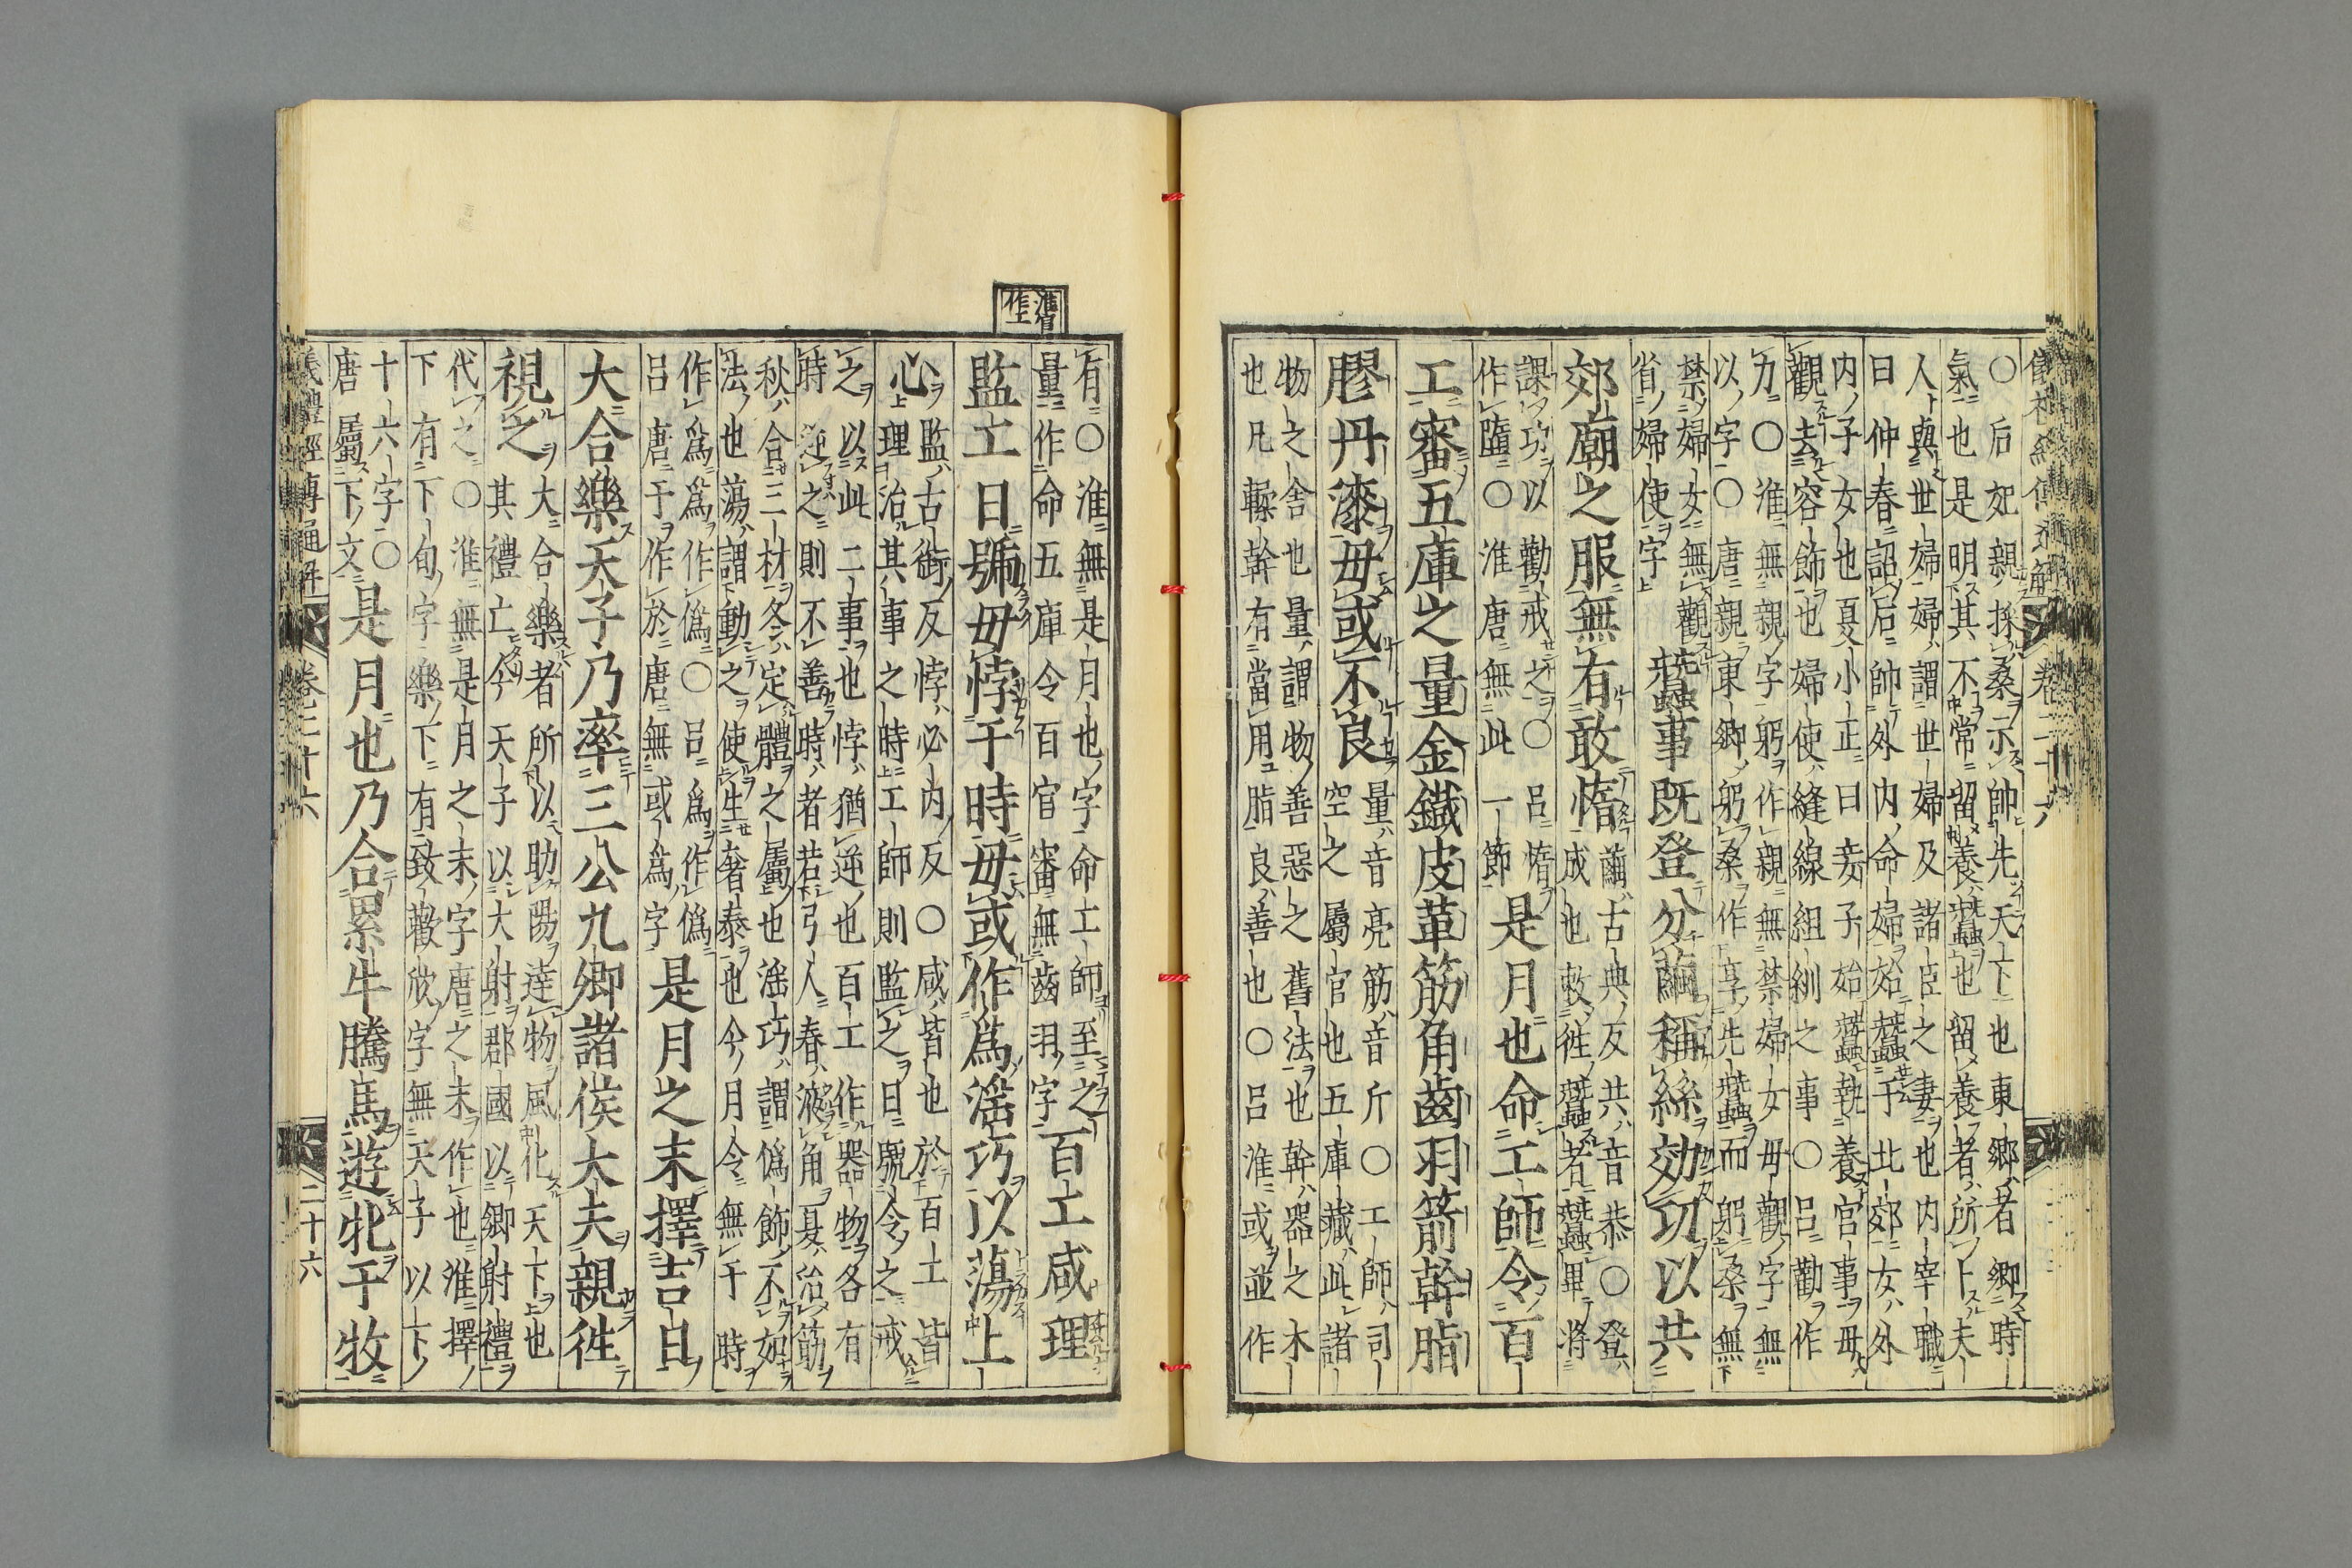 儀禮經傳通解 卷二十六
○后妃親採桑示帥先天下也東鄉者鄉時
氣也是明其不常留養蠶也留養者所卜夫
人與世婦婦謂世婦及諸臣之妻也内宰職
曰仲春詔后帥外内命婦始蠶于北郊女外
内子女也夏小正曰妾子始蠶執養宮事毋
觀去容飾也婦使縫線組紃之事○呂勸作
力○淮無親字躬作親無禁婦女毋觀字無
以字○唐親東鄉躬桑作享先蠶而躬桑無
禁婦女無觀
省婦使字
蠶事既登分繭稱絲効功以共
郊廟之服無有敢惰
繭古典反共音恭○登
成也敕往蠶者蠶畢將
課功以勸戒之○呂惰
作墮○淮唐無此一節
是月也命工師令百
工審五庫之量金鐵皮革筋角齒羽箭幹脂
膠丹漆毋或不良
量音亮筋音斤○工師司
空之屬官也五庫藏此諸
物之舍也量謂物善惡之舊法也幹器之木
也凡輮幹有當用脂良善也○呂淮或並作
有○淮無是月也字命工師至之
量作命五庫令百官審無齒羽字
百工咸理
淮官
作工
監工日號毋悖于時毋或作爲滛巧以蕩上
心
監古銜反悖必内反○咸皆也於百工皆
理治其事之時工師則監之日號令之戒
之以此二事也悖猶逆也百工作器物各有
時逆之則不善時者若弓人春液角夏治筋
秋合三材冬定體之屬也滛巧謂僞飾不如
法也蕩謂動之使生奢泰也今月令無于時
作爲爲作僞○呂爲作僞
呂唐于作於唐無或爲字
是月之末擇吉日
大合樂天子乃率三公九卿諸侯大夫親徃
視之
大合樂者所以助陽達物風化天下也
其禮亡今天子以大射郡國以鄉射禮
代之○淮無是月之末字唐之末作也淮擇
下有下旬字樂下有致歡欣字無天子以下
十六字○
唐屬下文
是月也乃合累牛騰馬遊牝于牧
儀禮經傳通解 卷二十六 二十六